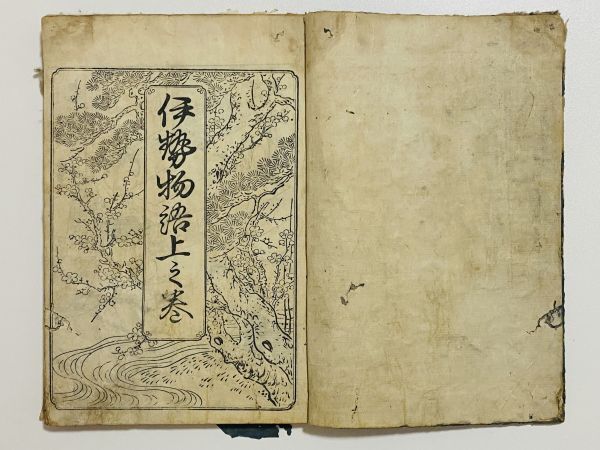 伊勢物語上之巻